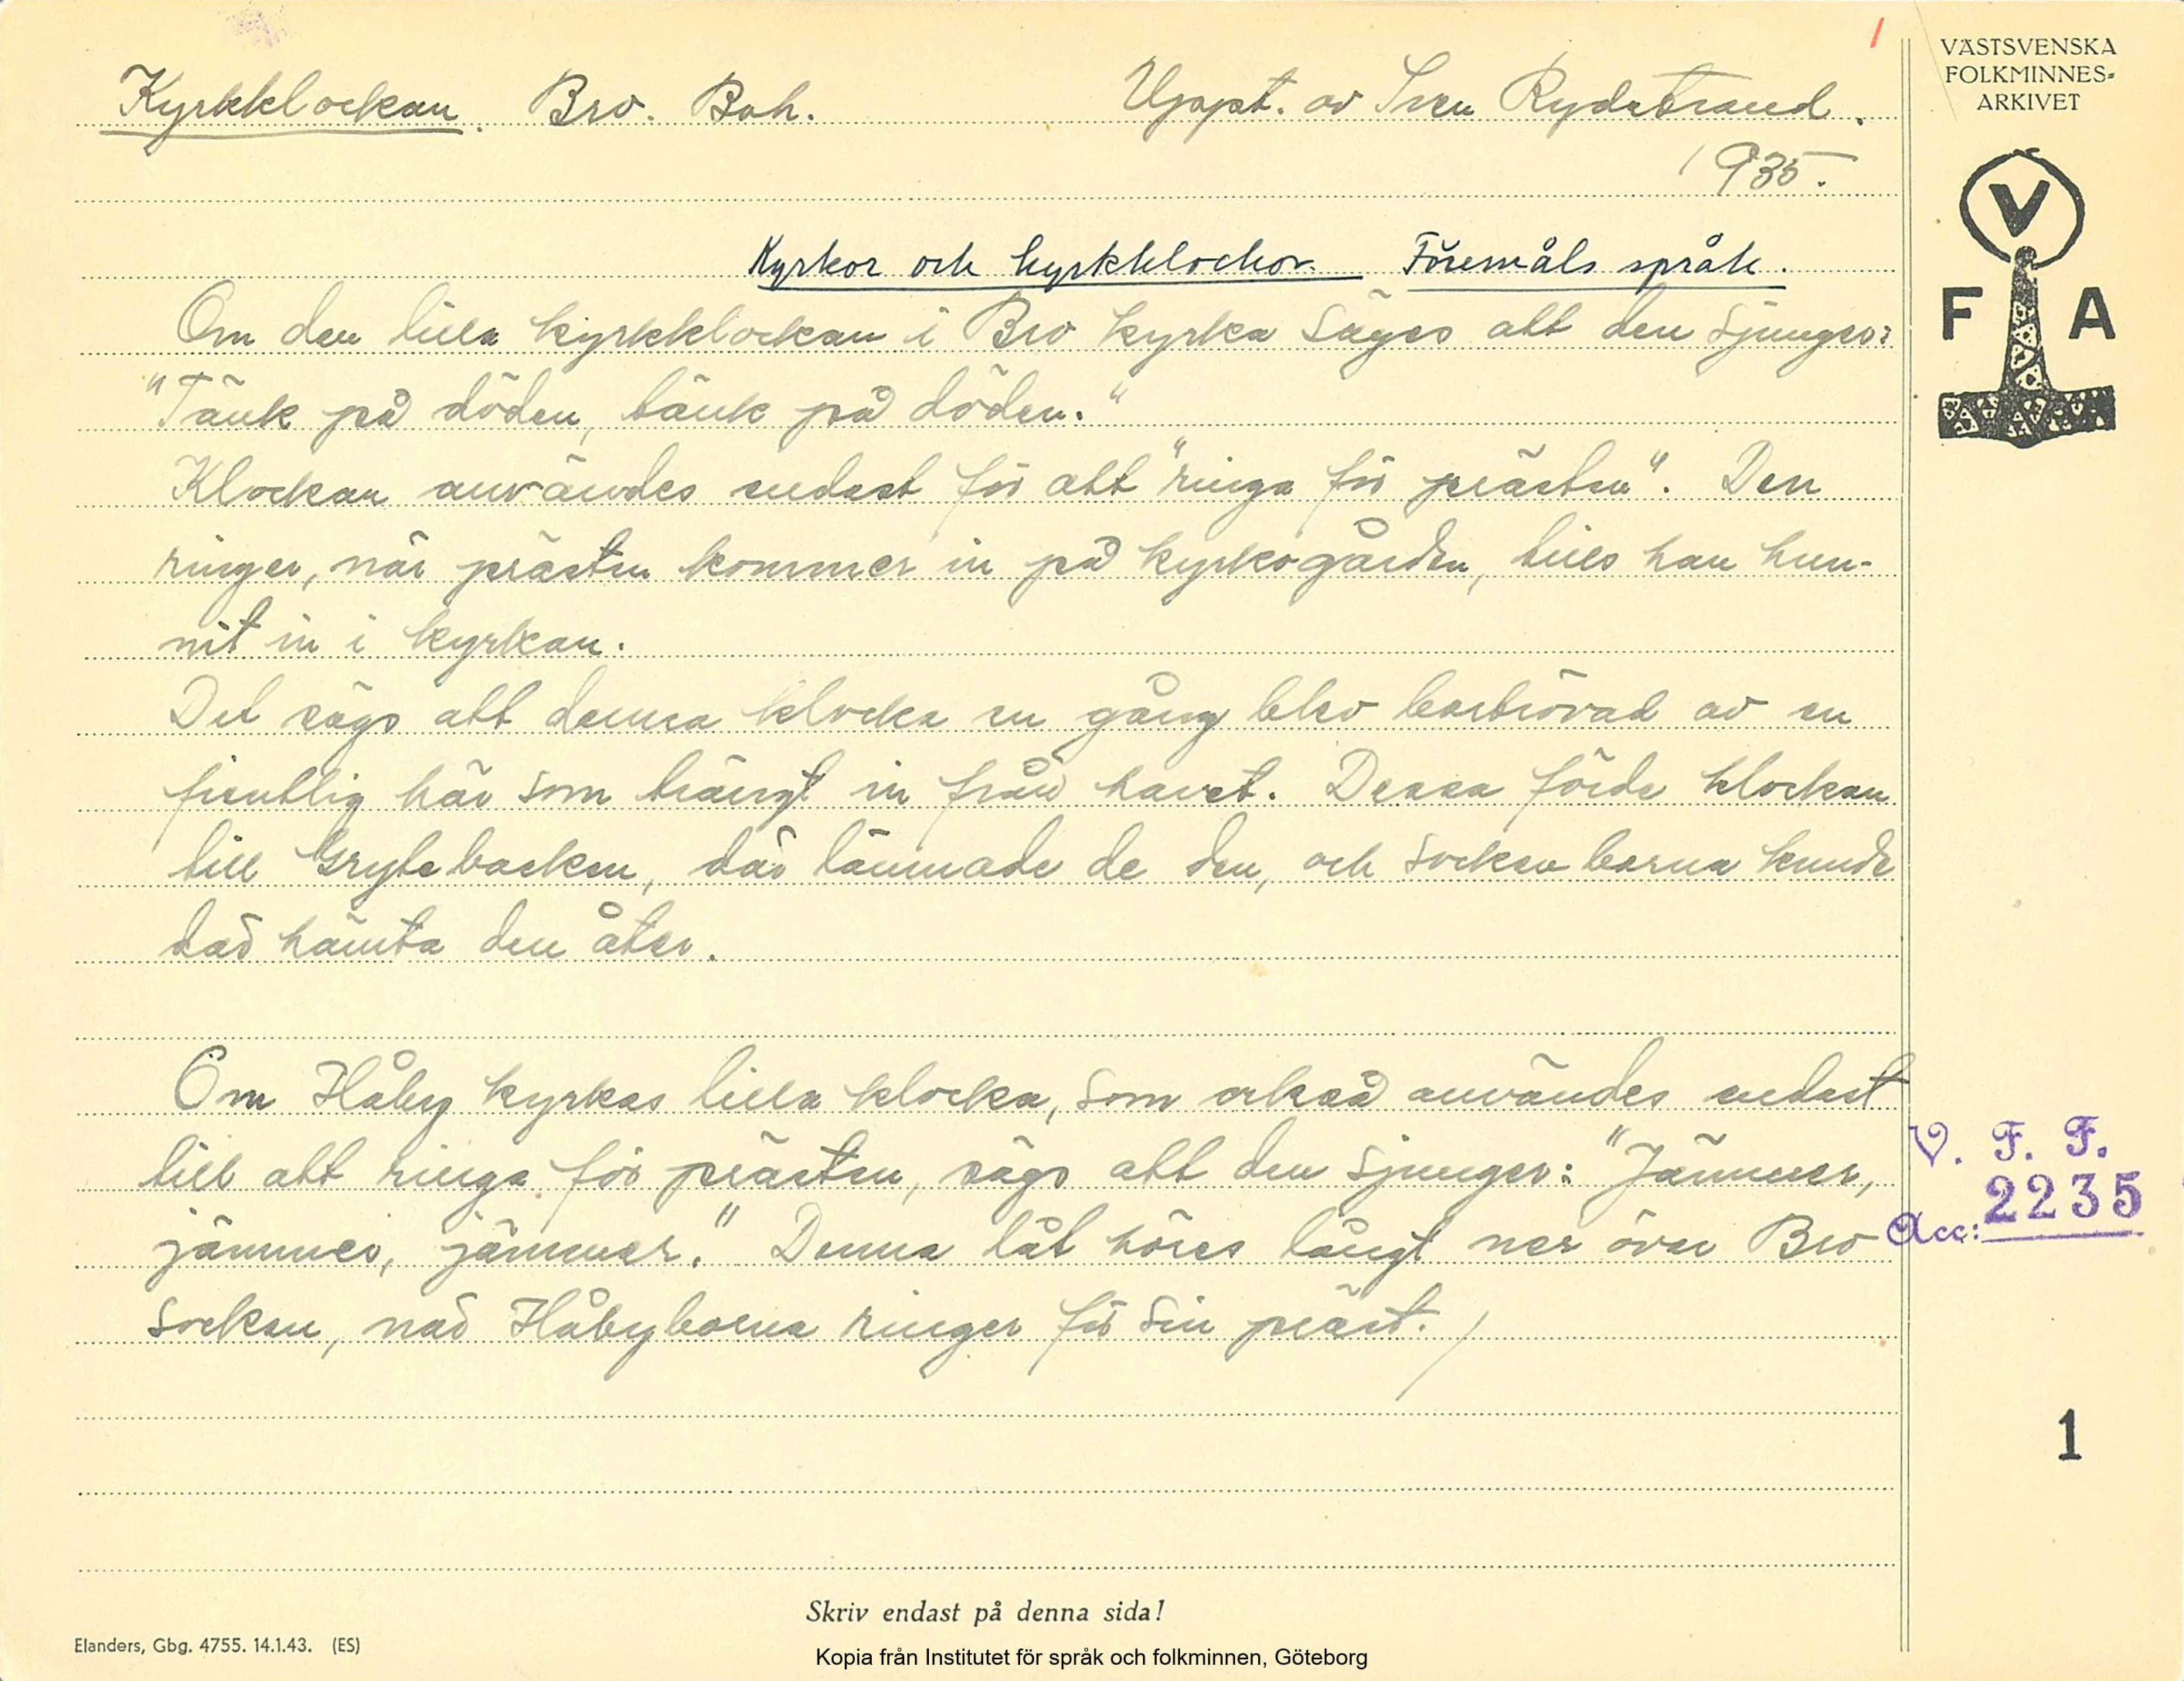 Kyrkklockan. Bro. Boh. Uppt. av Sven Rydstrand.
1935.
Kyrkor och kyrkklockor. Föremåls språk.
Om den lilla kyrkklockan i Bro kyrka säges att den sjunger:
"Tänk på döden, tänk på döden."
Klockan användes endast för att "ringa för prästen". Den
ringer, när prästen kommer in på kyrkogården, tills han hun-
nit in i kyrkan.
Det sägs att denna klocka en gång blev bortrövad av en
fientlig här som trängt in från havet. Dessa förde klockan
till Grytebacken, där lämnade de den, och sockenborna kunde
där hämta den åter.
Om Håby kyrkas lilla klocka, som också användes endast
till att ringa för prästen, sägs att den sjunger: "Jämmer,
jämmer, jämmer." Denna låt höres långt ner över Bro
socken, när Håbyborna ringer för sin präst.
VÄSTSVENSKA
FOLKMINNES-
ARKIVET
V
F A
V. F. F.
Acc: 2235
1
Skriv endast på denna sida!
Elanders, Gbg. 4755. 14.1.43. (ES)
Kopia från Institutet för språk och folkminnen, Göteborg